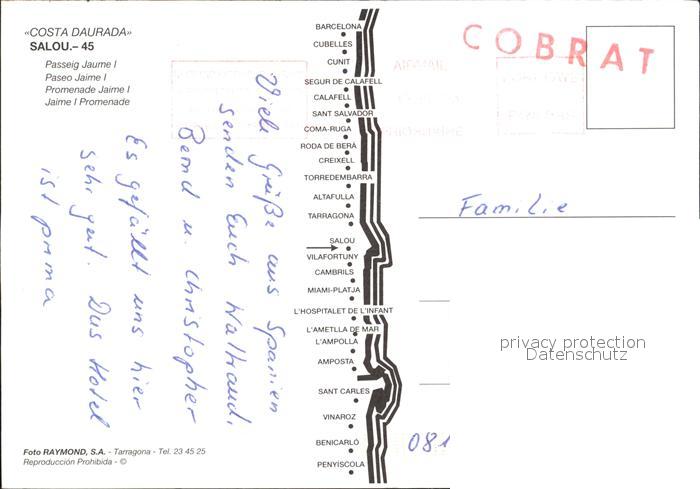 «COSTA DAURADA»
SALOU.– 45
Passeig Jaume I
Paseo Jaime I
Promenade Jaime I
Jaime I Promenade
Viele Grüße aus Spanien
senden Euch Waltraud,
Bernd u. Christopher
Es gefällt uns hier
sehr gut. Das Hotel
ist prima
Foto RAYMOND, S.A. - Tarragona - Tel. 23 45 25
Reproducción Prohibida - ©
BARCELONA
CUBELLES
CUNIT
SEGUR DE CALAFELL
CALAFELL
SANT SALVADOR
COMA-RUGA
RODA DE BERÀ
CREIXELL
TORREDEMBARRA
ALTAFULLA
TARRAGONA
SALOU
VILAFORTUNY
CAMBRILS
MIAMI-PLATJA
L'HOSPITALET DE L'INFANT
L'AMETLLA DE MAR
L'AMPOLLA
AMPOSTA
SANT CARLES
VINAROZ
BENICARLÓ
PENYISCOLA
COBRAT
AIRMAIL
Familie
privacy protection
Datenschutz
081